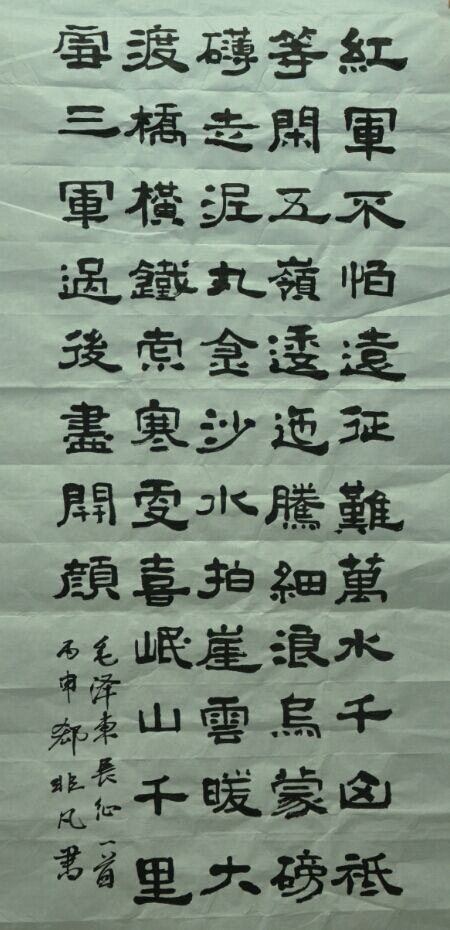 紅軍不怕遠征難萬水千山祗
等閑五嶺逶迤騰細浪烏蒙磅
礴走泥丸金沙水拍崖雲暖大
渡橋橫鐵索寒更喜岷山千里
雪三軍過後盡開顏
毛泽東長征一首
丙申非凡書